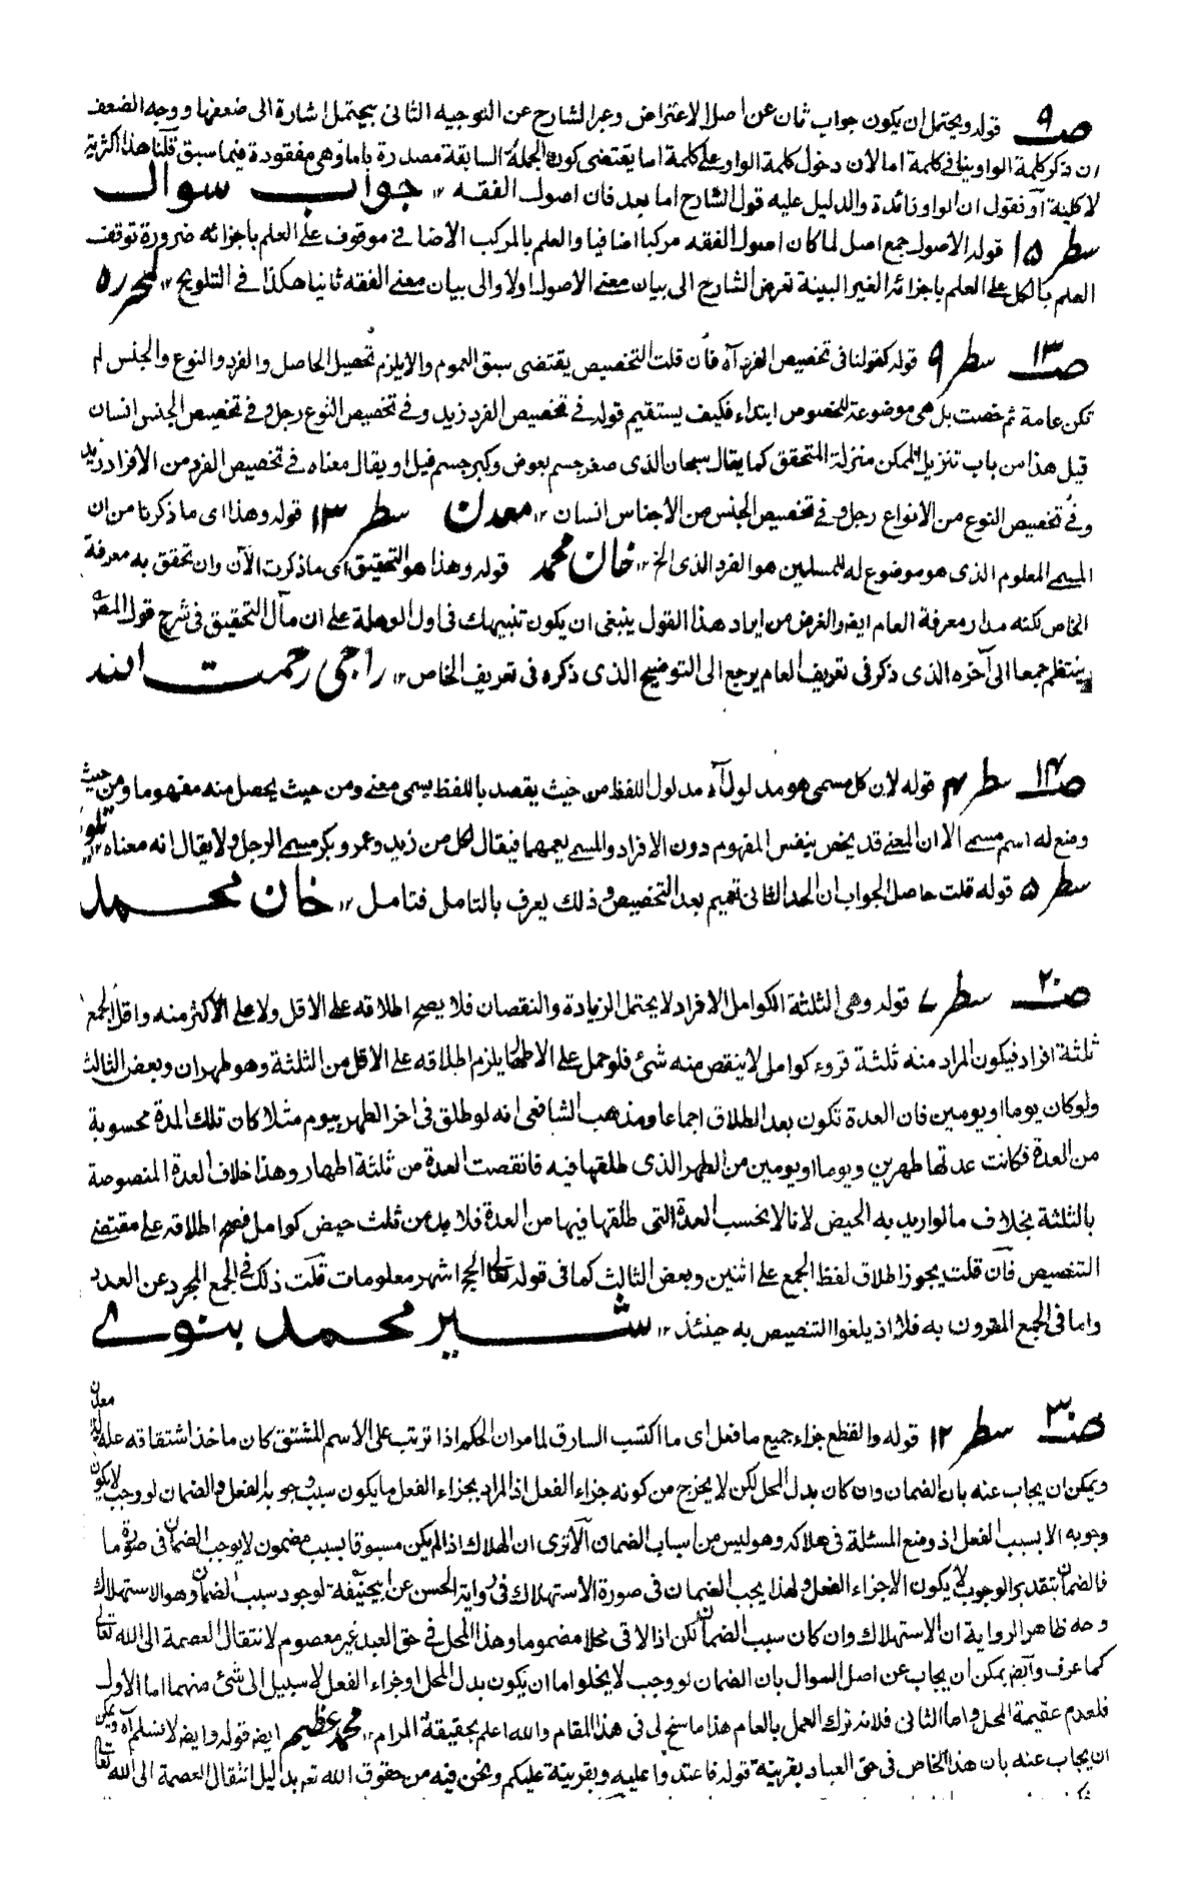 صـ ٩ قوله ويحتمل ان يكون جواب ثان عن اصل الاعتراض وعبر الشارح عن التوجيه الثانى بيحتمل اشارة الى ضعفها ووجه الضعف
ان ذكر كلمة الواو ينافى كلمة اما لان دخول كلمة الواو على كلمة اما يقتضى كون الجملة السابقة مصدرة باما وهى مفقودة فيما سبق قلنا هذا اكثرية
لا كلية او نقول ان الواو زائدة والدليل عليه قول الشارح اما بعد فان اصول الفقه ١٢ جواب سوال
سطر ١٥ قوله الاصول جمع اصل لما كان اصول الفقه مركبا اضافيا والعلم بالمركب الاضافى موقوف على العلم باجزائه ضرورة توقف
العلم بالكل على العلم باجزائه الغير البينة تعرض الشارح الى بيان معنى الاصول اولا والى بيان معنى الفقه ثانيا هكذا فى التلويح ١٢
صـ ١٣ سطر ٩ قوله كقولنا فى تخصيص الفرد آه فان قلت التخصيص يقتضى سبق العموم والا يلزم تحصيل الحاصل والفرد والنوع والجنس لم
تكن عامة ثم خصت بل هى موضوعة للخصوص ابتداء فكيف يستقيم قوله فى تخصيص الفرد زيد وفى تخصيص النوع رجل وفى تخصيص الجنس انسان
قيل هذا من باب تنزيل الممكن منزلة المتحقق كما يقال سبحان الذى صغر جسم بعوض وكبر جسم فيل او يقال معناه فى تخصيص الفرد من الافراد زيد
وفى تخصيص النوع من الانواع رجل وفى تخصيص الجنس من الاجناس انسان ١٢ معدن سطر ١٣ قوله وهذا اى ما ذكرنا من ان
المسمى المعلوم الذى هو موضوع له للمسلمين هو الفرد الذى الخ ١٢ خان محمد قوله وهذا هو التحقيق اى ما ذكرت الآن وان تحقق به معرفة
الخاص لكنه مدار معرفة العام ايضا والغرض من ايراد هذا القول ينبغى ان يكون تنبيهك فى اول الوهلة على ان مآل التحقيق فى شرح قول المصـ
ينتظم جمعا الى آخره الذى ذكر فى تعريف العام يرجع الى التوضيح الذى ذكره فى تعريف الخاص ١٢ راجى رحمت الله
صـ ١٤ سطر ٤ قوله لان كل مسمى هو مدلول آه مدلول اللفظ من حيث يقصد باللفظ يسمى معنى ومن حيث يحصل منه مفهوما ومن حيث
وضع له اسم مسمى الا ان المعنى قد يخص بنفس المفهوم دون الافراد والمسمى يعمهما فيقال لكل من زيد وعمر وبكر مسمى الرجل ولا يقال انه معناه ١٢
سطر ٥ قوله قلت حاصل الجواب ان الحد الثانى تعميم بعد التخصيص وذلك يعرف بالتامل فتامل ١٢ خان محمد
صـ ٢٠ سطر ٧ قوله وهى الثلثة الكوامل الافراد لا يحتمل الزيادة والنقصان فلا يصح اطلاقه على الاقل ولا على الاكثر منه واقل الجمع
ثلثة افراد فيكون المراد منه ثلثة قروء كوامل لا ينقص منه شئ فلو حمل على الاطهار يلزم اطلاقه على الاقل من الثلثة وهو طهران وبعض الثالث
ولو كان يوما او يومين فان العدة تكون بعد الطلاق اجماعا ومذهب الشافعى انه لو طلق فى اخر الطهر بيوم مثلا كان تلك المدة محسوبة
من العدة فكانت عدتها طهرين ويوما او يومين من الطهر الذى طلقها فيه فانقصت العدة من ثلثة اطهار وهذا خلاف العدة المنصوصة
بالثلثة بخلاف ما لو اريد به الحيض لانا لا نحسب العدة التى طلقها فيها من العدة فلا بد من ثلث حيض كوامل فصح اطلاقه على مقتضى
التنصيص فان قلت يجوز اطلاق لفظ الجمع على اثنين وبعض الثالث كما فى قوله تعالى الحج اشهر معلومات قلت ذلك فى الجمع المجرد عن العدد
واما فى الجمع المقرون به فلا اذ يلغوا التنصيص به حينئذ ١٢ شير محمد بنوى
صـ ٣٠ سطر ١٢ قوله والقطع جزاء جميع ما فعل اى ما اكتسب السارق لما مر ان الحكم اذا ترتب على الاسم المشتق كان ماخذ اشتقاقه علة له معدن
ويمكن ان يجاب عنه بان الضمان وان كان بدل المحل لكن لا يخرج من كونه جزاء الفعل اذ المراد بجزاء الفعل ما يكون سبب وجوبه الفعل والضمان لو وجب لا يكون
وجوبه الا بسبب الفعل اذ وضع المسئلة فى هلاكه وهو ليس من اسباب الضمان الا ترى ان الهلاك اذا لم يكن مسبوقا بسبب مضمون لا يوجب الضمان فى صورة ما
فالضمان بتقدير الوجوب لا يكون الا جزاء الفعل ولهذا يجب الضمان فى صورة الاستهلاك فى رواية الحسن عن ابيحنيفة لوجود سبب الضمان وهو الاستهلاك
وجه ظاهر الرواية ان الاستهلاك وان كان سبب الضمان لكن اذا لاقى محلا مضموما وهذا المحل فى حق العبد غير معصوم لانتقال العصمة الى الله تعالى
كما عرف وايضا يمكن ان يجاب عن اصل السوال بان الضمان لو وجب لا يخلوا ما ان يكون بدل المحل او جزاء الفعل لا سبيل الى شئ منهما اما الاول
فلعدم عقيمة المحل واما الثانى فلانه ترك العمل بالعام هذا ما سنح لى فى هذا المقام والله اعلم بحقيقة المرام ١٢ محمد عظيم ايضا قوله وايضا لا نسلم آه ويمكن
ان يجاب عنه بان هذا الخاص فى حق العباد بقرينة قوله فاعتدوا عليه وبقرينة عليكم ونحن فيه من حقوق الله تعـ بدليل انتقال العصمة الى الله تعالى